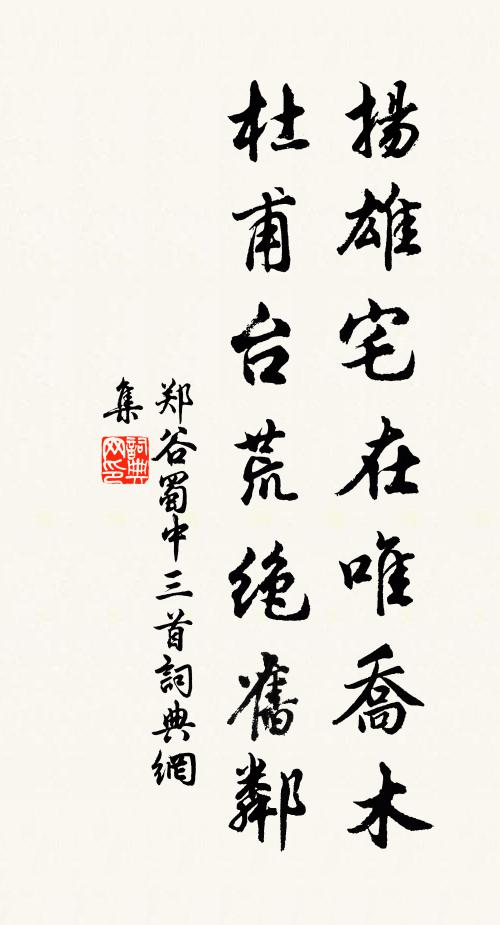 揚雄宅在唯喬木
杜甫台荒絶舊鄰
郑谷蜀中三首詞典網
集
詞典网印